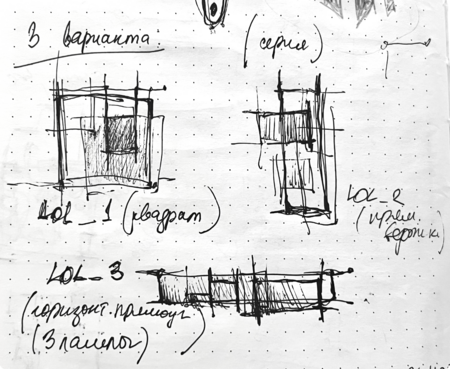 3 варианта
(серия)
LOL_1 (квадрат)
LOL_2
(прям.
LOL_3
(горизонт. прямоуг)
(3 панели)